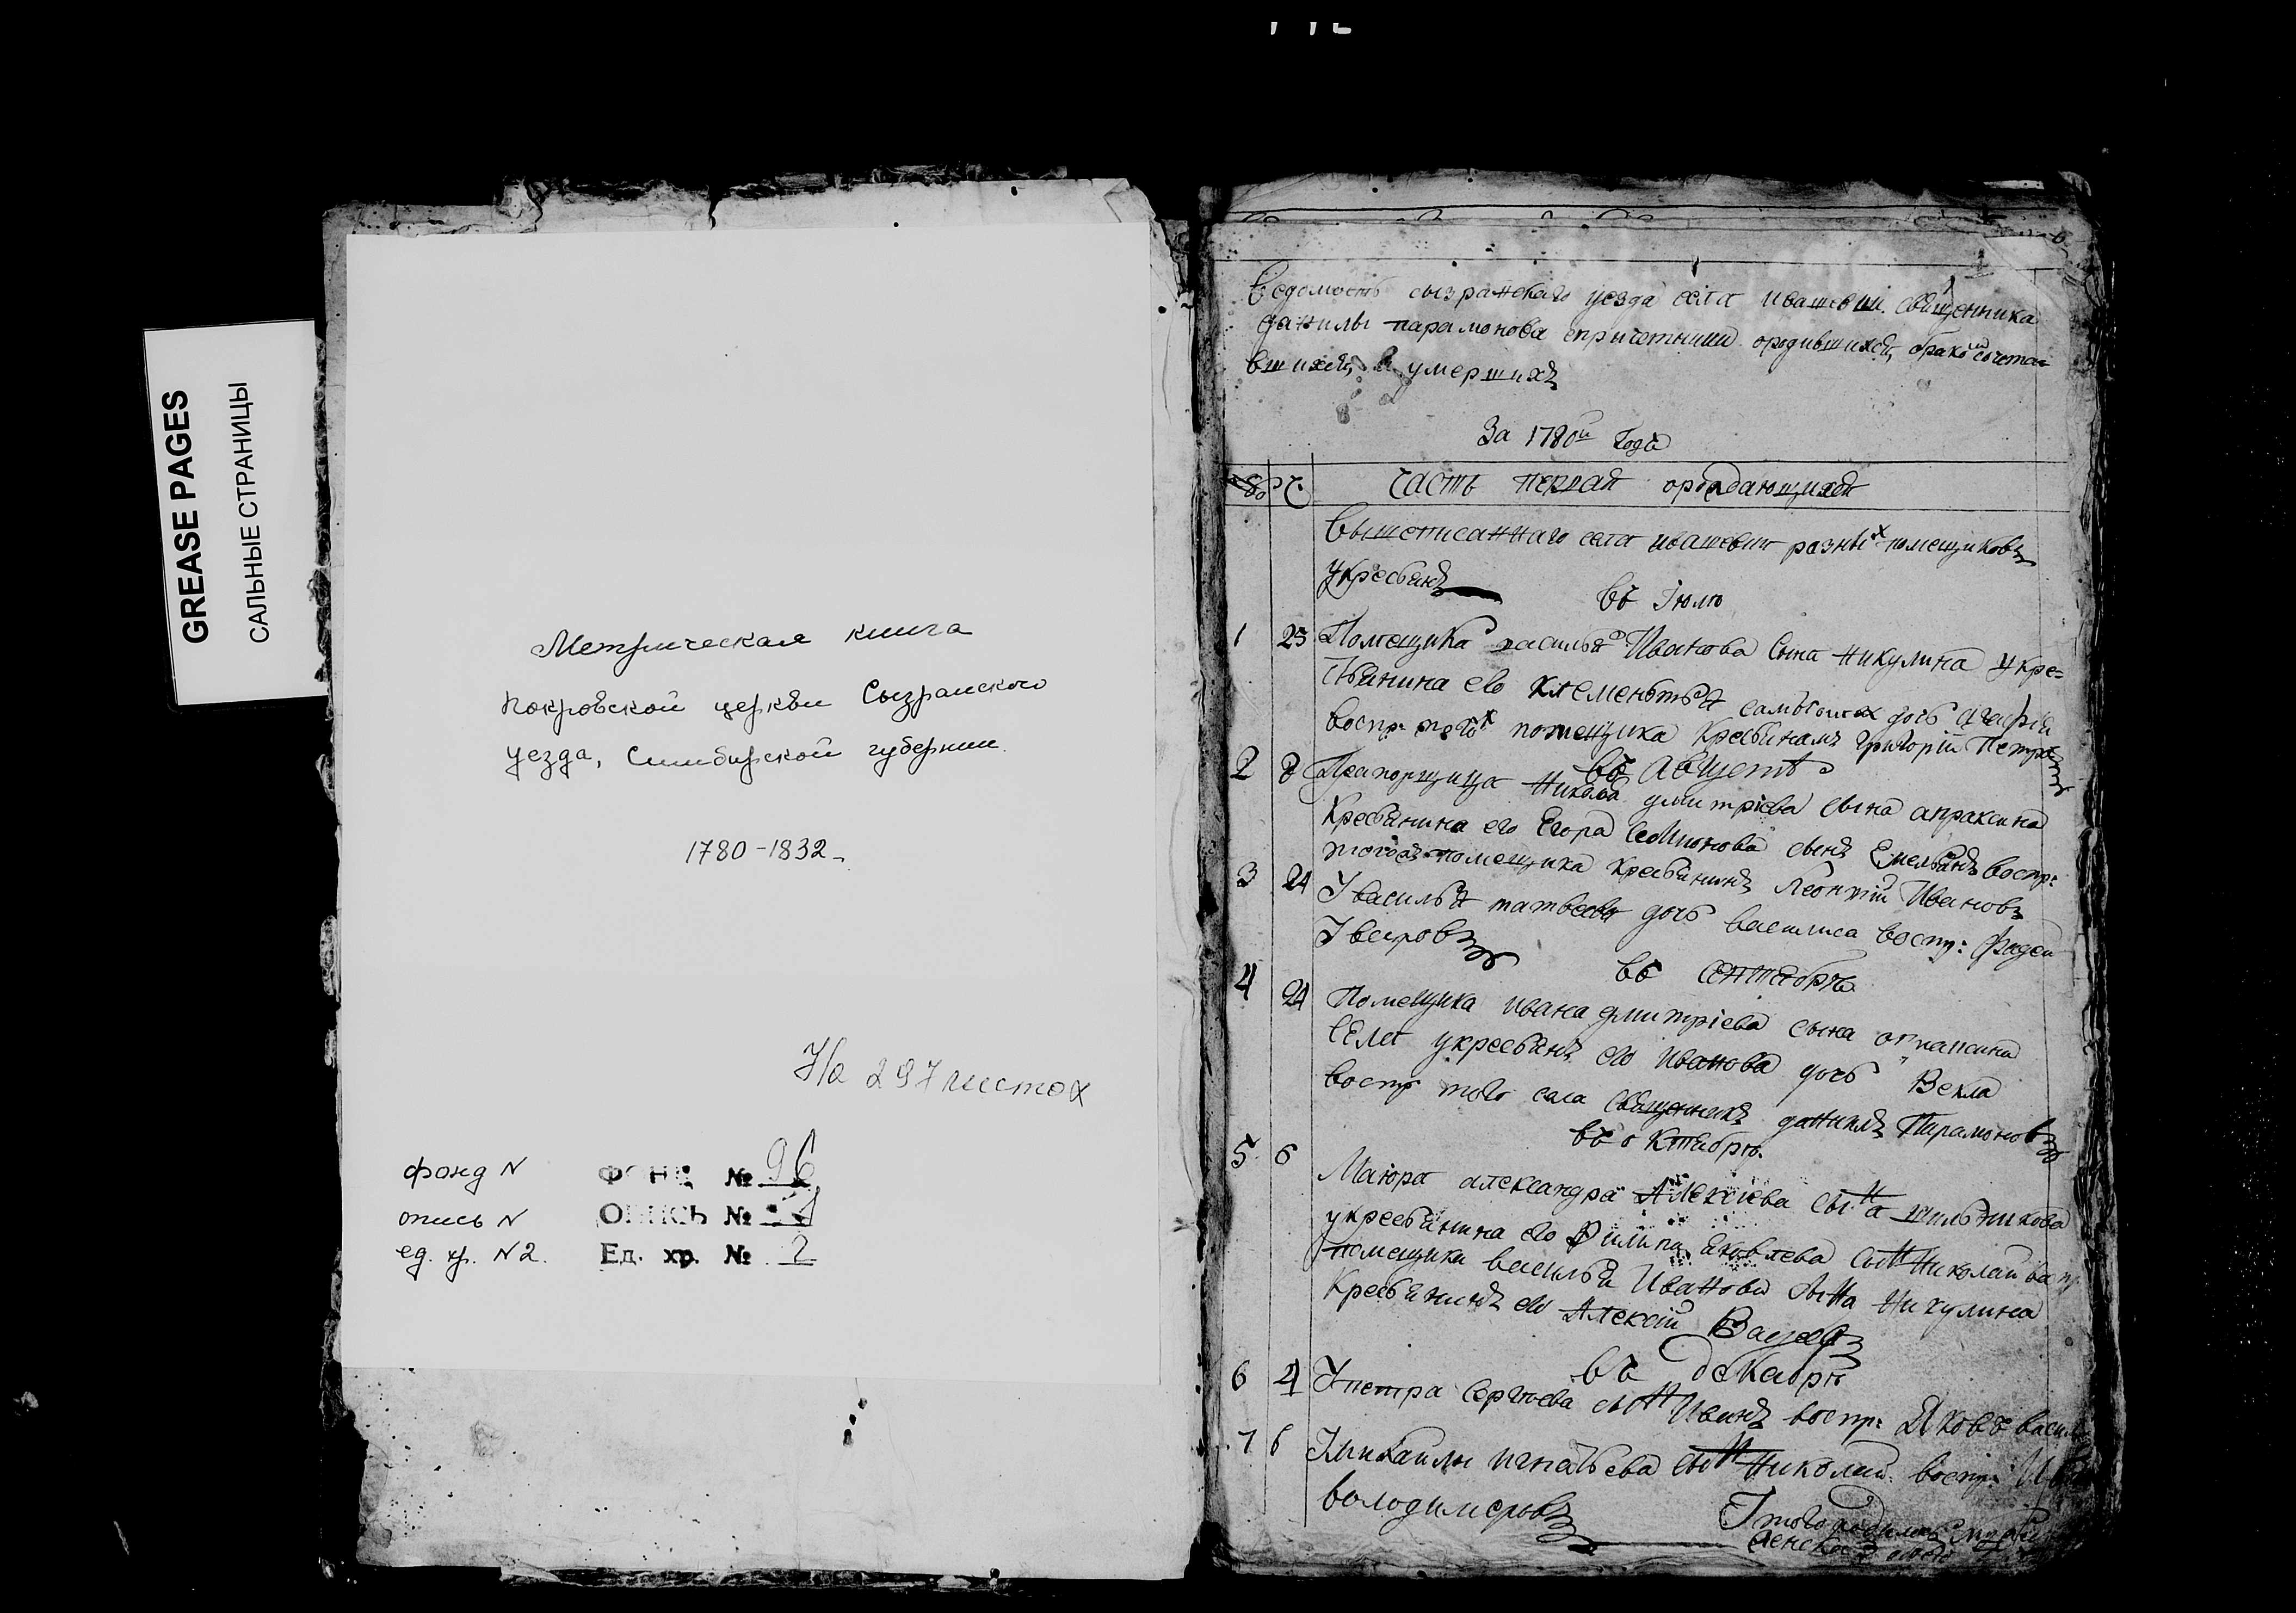 GREASE PAGES
САЛЬНЫЕ СТРАНИЦЫ
Метрическая книга
Покровской церкви Сызранского
уезда, Симбирской губернии.
1780-1832
На 297 листах
фонд N ФОНД № 96
опись N ОПИСЬ №
ед. хр. N2. Ед. хр. № 2
Ведомость сызранскаго уезда села ивашевки священника
данилы парамонова спричетники ородившихся, бракосочета
вшихся, и умершихъ
За 1780й Годъ
часть первая ораждающихся
Вышеписаннаго села ивашевки разныхъ помещиковъ
укресьянъ
въ Июлѣ
1 25 Помещика василья Иванова Сына никулина укре-
стьянина его клементья дочь агафья
воспр: тогожъ помещика Кресьянинъ григорій Петровъ
въ Августѣ
2 8 Прапорщика дмитріева сына апраксина
Кресьянина его Егора сынъ Емельянъ воспр:
тогожъ помещика кресьянинъ Леонтій Ивановъ
3 24 У василья матвеева дочь василиса воспр: фадей
въ Сентябрѣ
4 24 Помещика ивана дмитріева сына
укресьянъ его Иванова дочь Векла
воспр того села священникъ данилъ Парамоновъ
въ октябрѣ.
5 6 Маіора александра Алексіева сына
укресьянина его Филипа Яковлева сынъ николай воспр
помещика василья Иванова сына Никулина
Кресьянинъ его Алексій
въ декабрѣ
6 4 У петра Сергѣева сынъ Иванъ воспр: Яковъ
7 6 Умихаилы игнатьева сынъ николай воспр:
володимеровъ
Итого